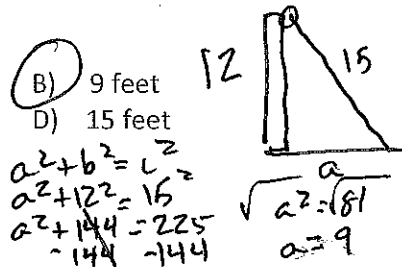 12
15
B) 9 feet
D) 15 feet
a
a² + b² = c²
a² + 12² = 15²
a² + 144 = 225
-144 -144
√a² = √81
a = 9